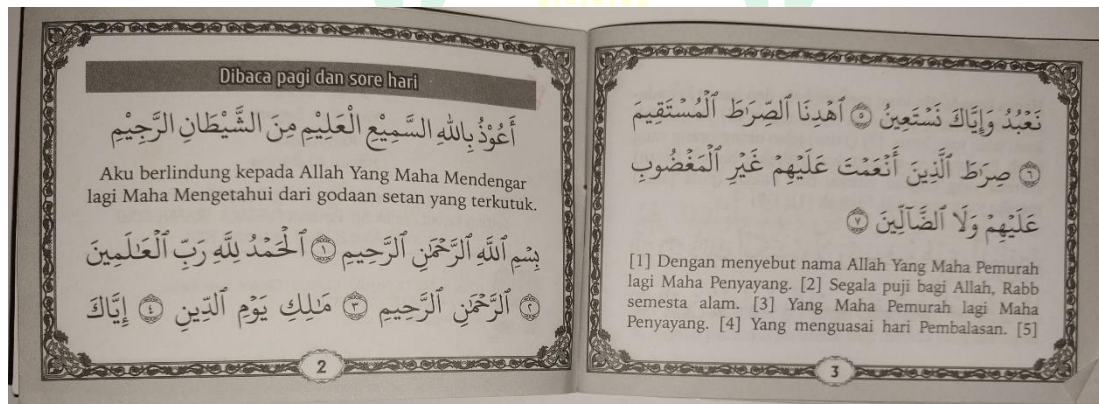 Dibaca pagi dan sore hari
أَعُوْذُ بِاللهِ السَّمِيْعِ الْعَلِيْمِ مِنَ الشَّيْطَانِ الرَّجِيْمِ
Aku berlindung kepada Allah Yang Maha Mendengar
lagi Maha Mengetahui dari godaan setan yang terkutuk.
بِسْمِ ٱللَّهِ ٱلرَّحْمَٰنِ ٱلرَّحِيمِ ١ ٱلْحَمْدُ لِلَّهِ رَبِّ ٱلْعَٰلَمِينَ
٢ ٱلرَّحْمَٰنِ ٱلرَّحِيمِ ٣ مَٰلِكِ يَوْمِ ٱلدِّينِ ٤ إِيَّاكَ
2
نَعْبُدُ وَإِيَّاكَ نَسْتَعِينُ ٥ ٱهْدِنَا ٱلصِّرَٰطَ ٱلْمُسْتَقِيمَ
٦ صِرَٰطَ ٱلَّذِينَ أَنْعَمْتَ عَلَيْهِمْ غَيْرِ ٱلْمَغْضُوبِ
عَلَيْهِمْ وَلَا ٱلضَّآلِّينَ ٧
[1] Dengan menyebut nama Allah Yang Maha Pemurah
lagi Maha Penyayang. [2] Segala puji bagi Allah, Rabb
semesta alam. [3] Yang Maha Pemurah lagi Maha
Penyayang. [4] Yang menguasai hari Pembalasan. [5]
3